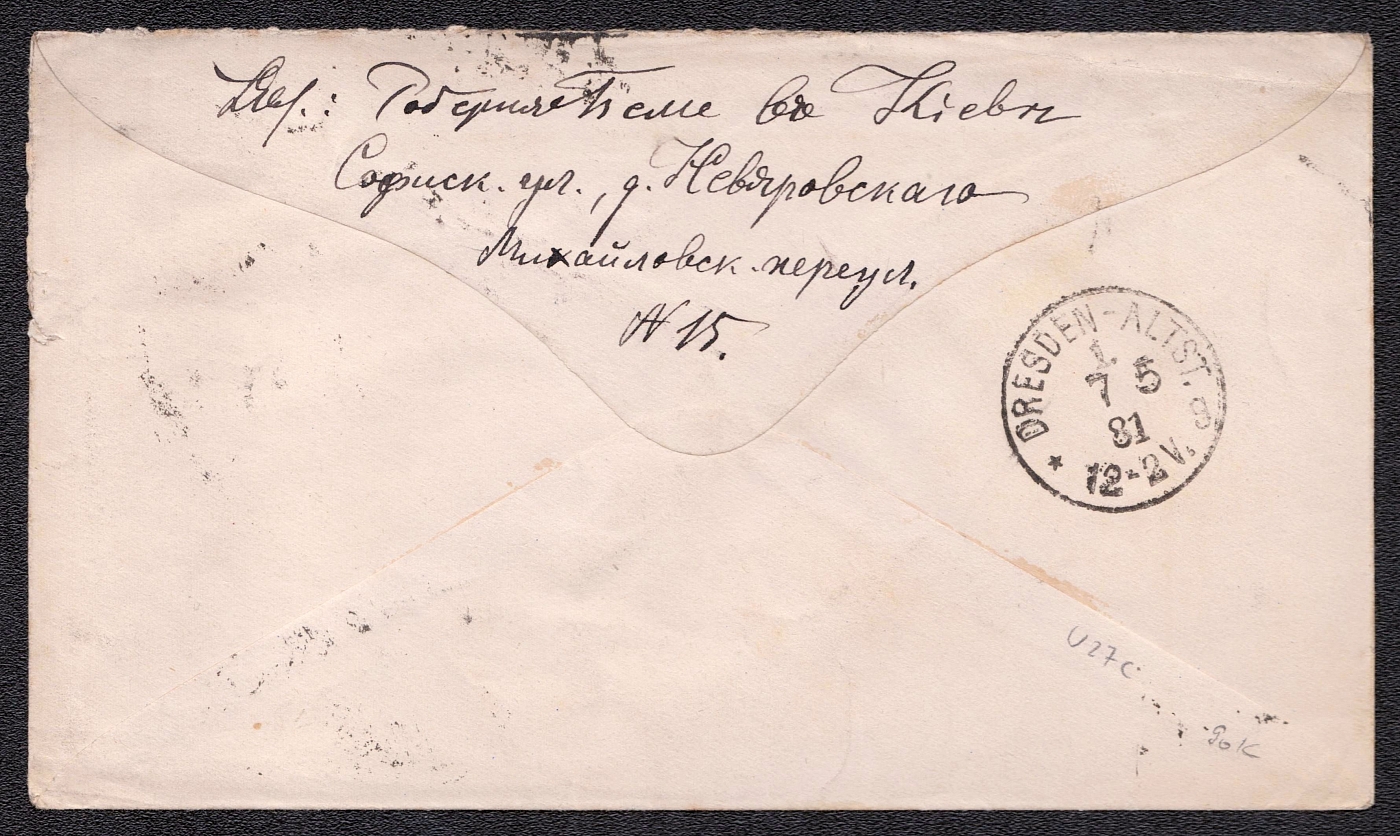 Адр.: Роберту Беме въ Кіевѣ
Софіиск. ул., д. Невяровскаго
Михайловск. переул.
N 15.
DRESDEN-ALTST. 8
1.
7 5
81
12-2V.
U27C